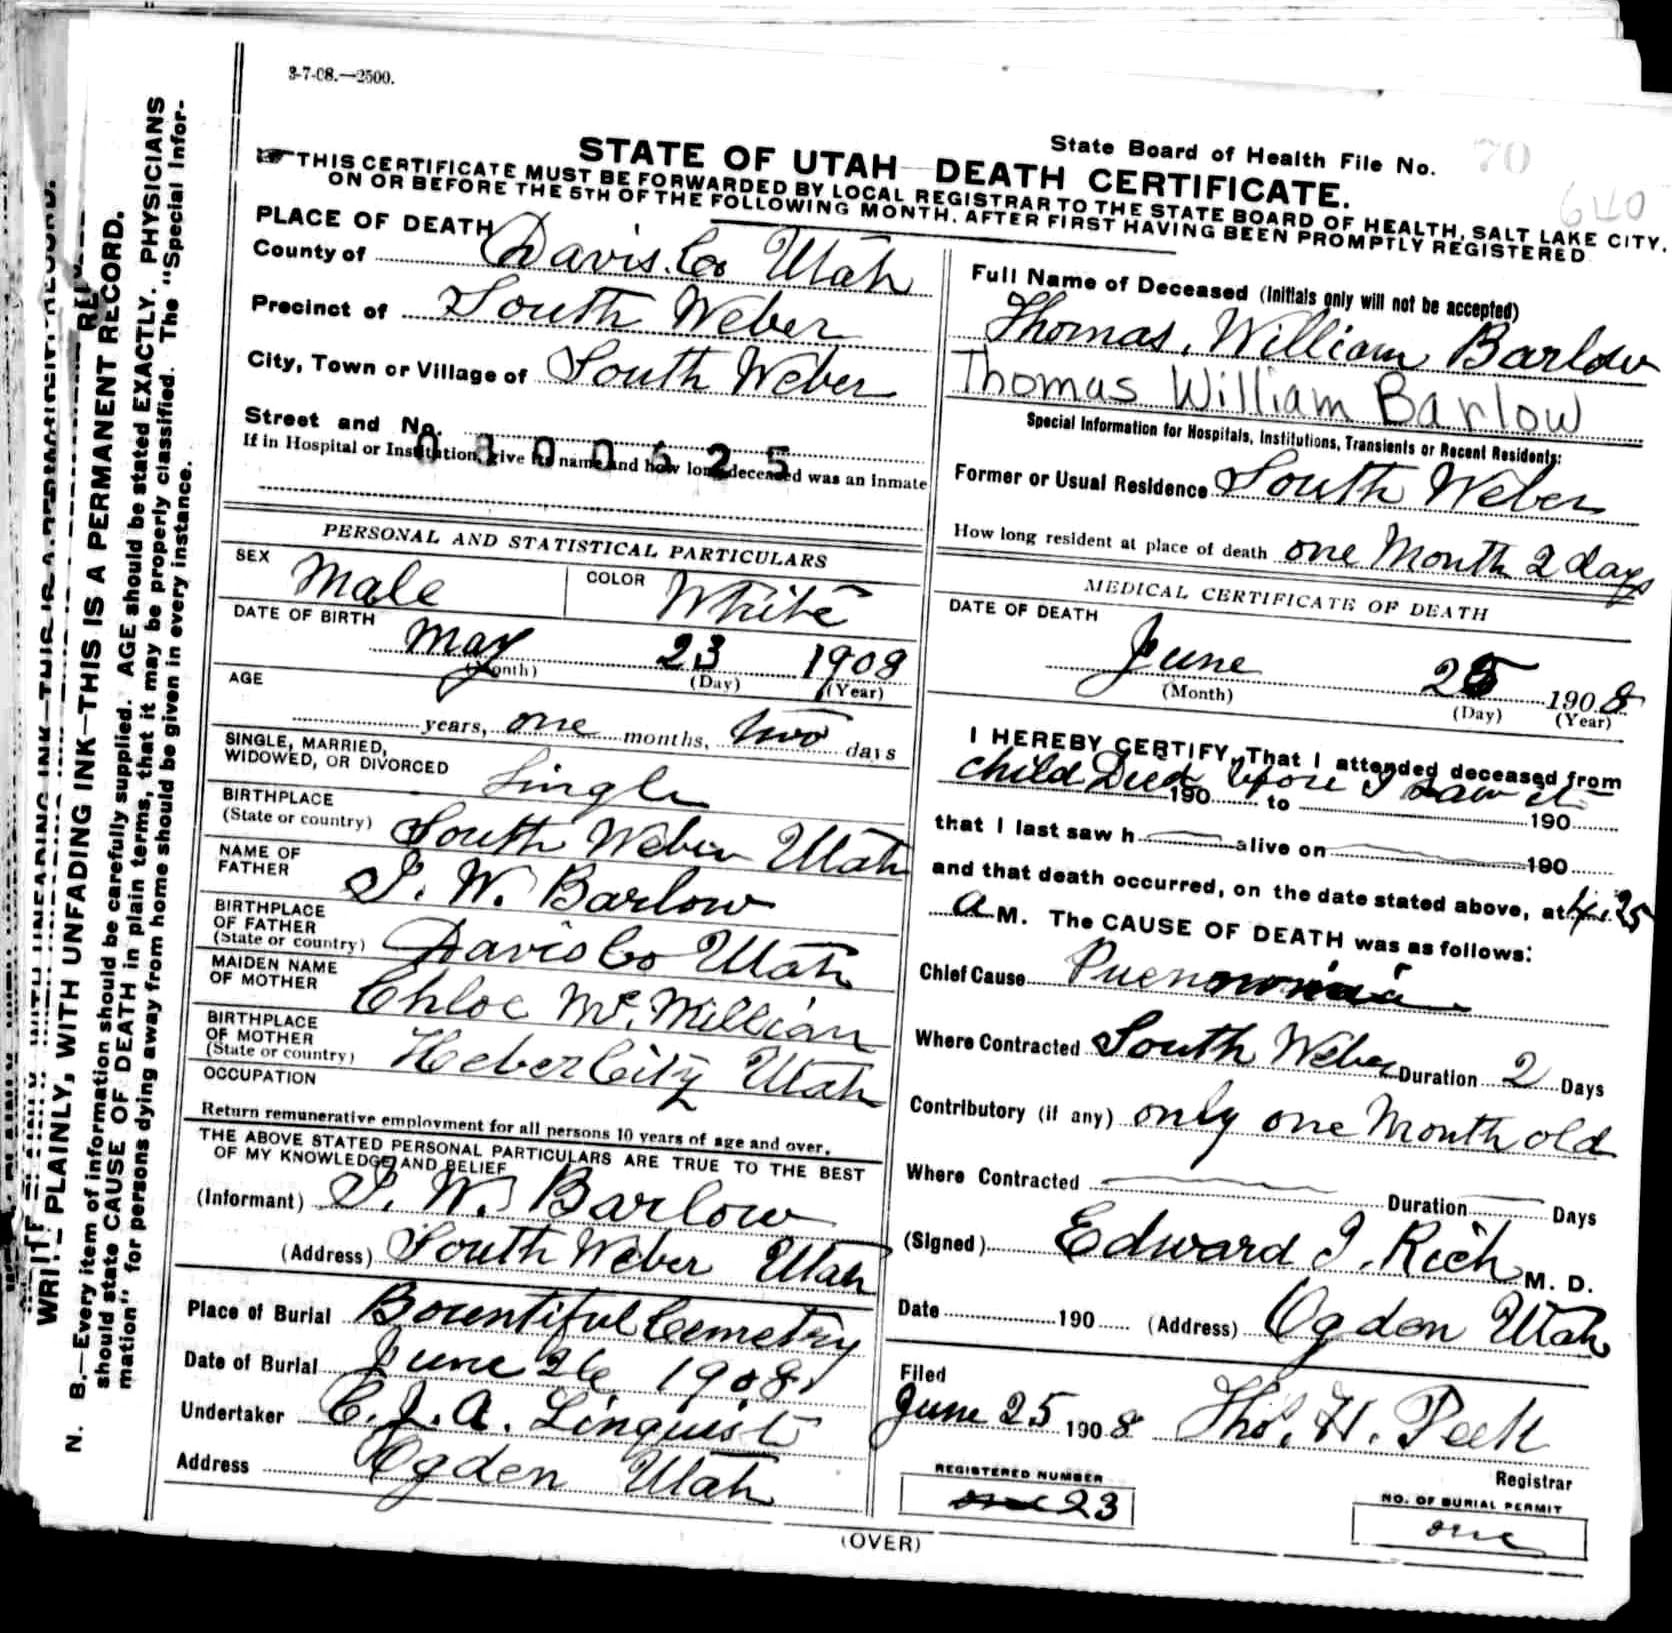 3-7-08.—2500.
State Board of Health File No. 70
640
STATE OF UTAH—DEATH CERTIFICATE.
THIS CERTIFICATE MUST BE FORWARDED BY LOCAL REGISTRAR TO THE STATE BOARD OF HEALTH, SALT LAKE CITY,
ON OR BEFORE THE 5TH OF THE FOLLOWING MONTH, AFTER FIRST HAVING BEEN PROMPTLY REGISTERED
PLACE OF DEATH
County of Davis. Co Utah
Precinct of South Weber
City, Town or Village of South Weber
Street and No.
0800625
If in Hospital or Institution, give its name and how long deceased was an inmate
PERSONAL AND STATISTICAL PARTICULARS
SEX Male COLOR White
DATE OF BIRTH May 23 1908
(Month) (Day) (Year)
AGE
years, one months, two days
SINGLE, MARRIED,
WIDOWED, OR DIVORCED Single
BIRTHPLACE
(State or country) South Weber Utah
NAME OF
FATHER T. W. Barlow
BIRTHPLACE
OF FATHER
(State or country) Davis Co Utah
MAIDEN NAME
OF MOTHER Chloe Mc. Millian
BIRTHPLACE
OF MOTHER
(State or country) Heber City Utah
OCCUPATION
Return remunerative employment for all persons 10 years of age and over.
THE ABOVE STATED PERSONAL PARTICULARS ARE TRUE TO THE BEST
OF MY KNOWLEDGE AND BELIEF
(Informant) T. W. Barlow
(Address) South Weber Utah
Place of Burial Bountiful Cemetry
Date of Burial June 26 1908.
Undertaker C. J. A. Linquist
Address Ogden Utah
Full Name of Deceased (Initials only will not be accepted)
Thomas. William Barlow
Thomas William Barlow
Special Information for Hospitals, Institutions, Transients or Recent Residents:
Former or Usual Residence South Weber
How long resident at place of death one Month 2 days
MEDICAL CERTIFICATE OF DEATH
DATE OF DEATH
June 25 1908
(Month) (Day) (Year)
I HEREBY CERTIFY, That I attended deceased from
child Died before I saw it
190 to 190
that I last saw h alive on 190
and that death occurred, on the date stated above, at 25
a M. The CAUSE OF DEATH was as follows:
Chief Cause Puenmonia
Where Contracted South Weber Duration 2 Days
Contributory (if any) only one Month old
Where Contracted Duration Days
(Signed) Edward I. Rich M. D.
Date 190 (Address) Ogden Utah
Filed
June 25 1908 Tho. H. Peek
Registrar
REGISTERED NUMBER
one 23
NO. OF BURIAL PERMIT
one
(OVER)
WRITE PLAINLY, WITH UNFADING INK—THIS IS A PERMANENT RECORD.
N. B.—Every item of information should be carefully supplied. AGE should be stated EXACTLY. PHYSICIANS
should state CAUSE OF DEATH in plain terms, that it may be properly classified. The "Special Infor-
mation" for persons dying away from home should be given in every instance.